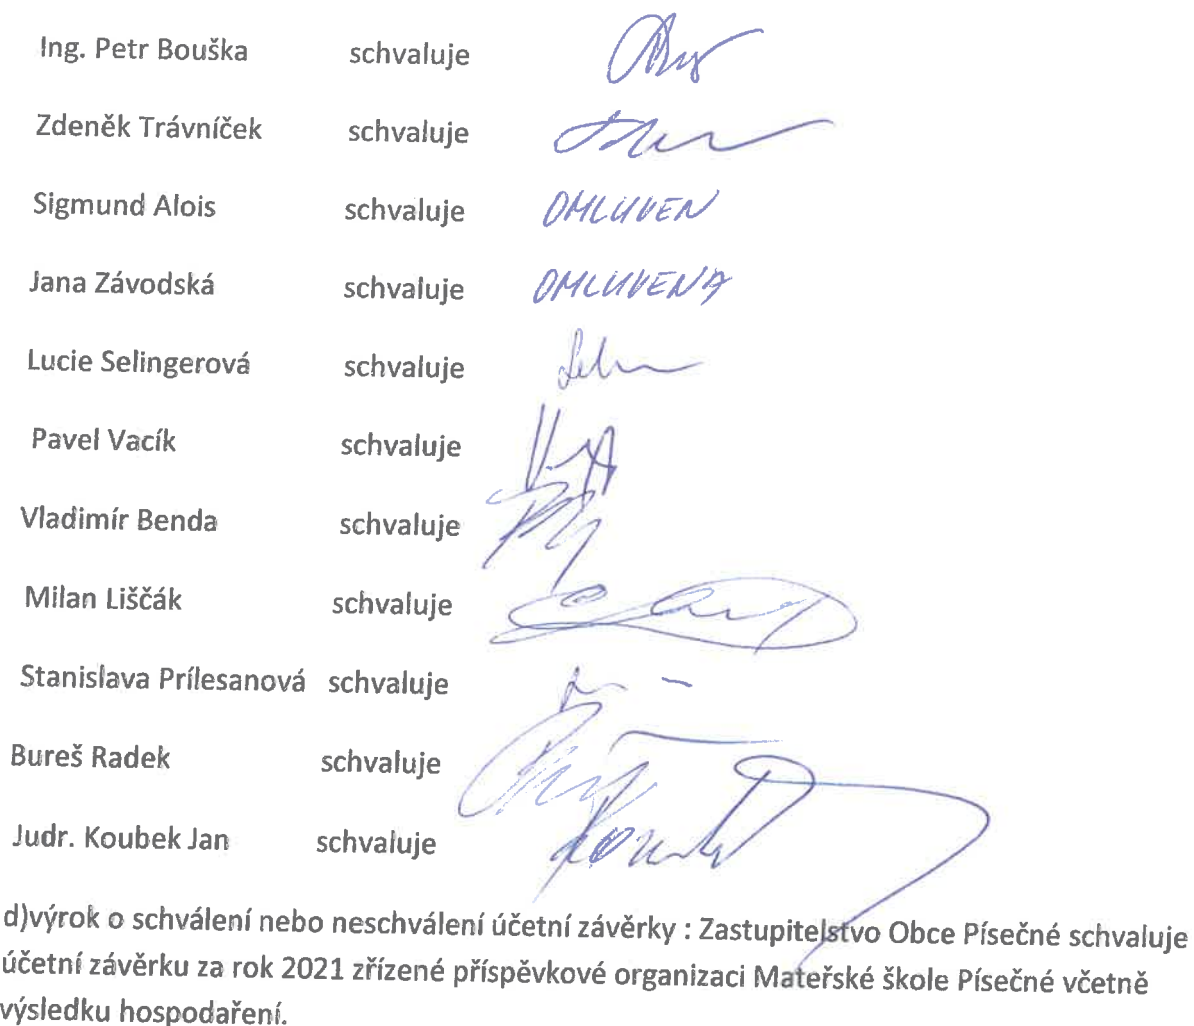 Ing. Petr Bouška schvaluje
Zdeněk Trávníček schvaluje
Sigmund Alois schvaluje OMLUVEN
Jana Závodská schvaluje OMLUVENA
Lucie Selingerová schvaluje
Pavel Vacík schvaluje
Vladimír Benda schvaluje
Milan Liščák schvaluje
Stanislava Prílesanová schvaluje
Bureš Radek schvaluje
Judr. Koubek Jan schvaluje
d)výrok o schválení nebo neschválení účetní závěrky : Zastupitelstvo Obce Písečné schvaluje
účetní závěrku za rok 2021 zřízené příspěvkové organizaci Mateřské škole Písečné včetně
výsledku hospodaření.